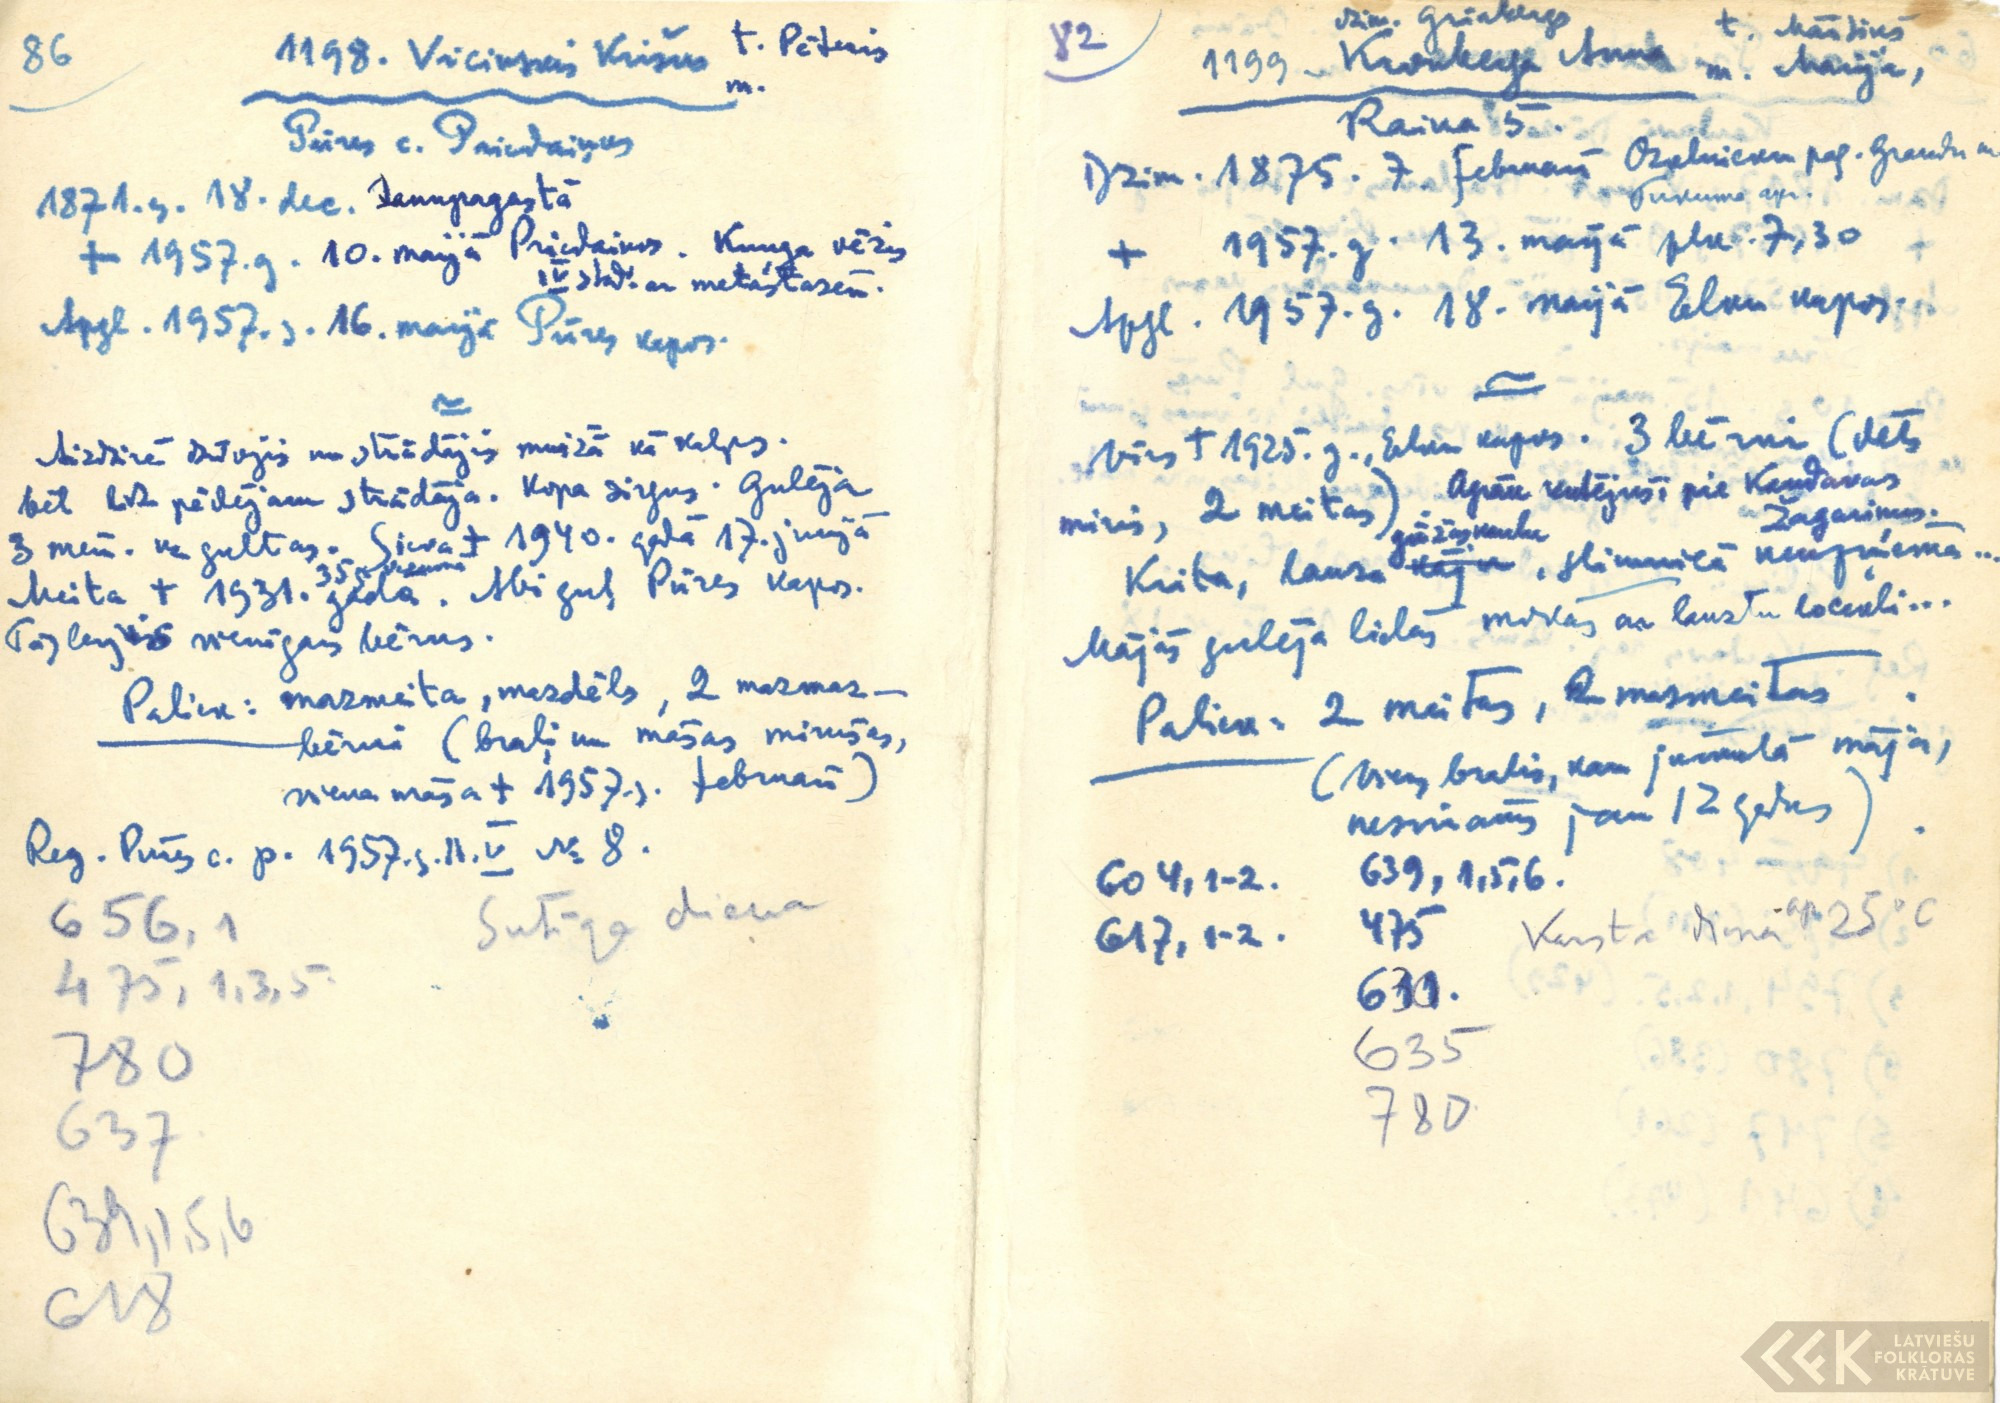 86
1198. Vicinskis Krišus t. Pēteris
m.
Pūres c. Priedaines
1871.g. 18. dec. Jaunpagastā
+ 1957.g. 10. maijā Priedaines. Kuņģa vēzis
IV stad. ar metastazēm.
Apgl. 1957.g. 16. maijā Pūres kapos.
Aizdzirē dzīvojis un strādājis muižā kā kalps.
bet līdz pēdējam strādāja. Kopa zirgus. Gulēja
3 mēn. uz gultas. Sieva + 1940. gadā 17. jūnijā
Meita + 1931. gadā 35 g. vecumā. Abi guļ Pūres kapos.
vienīgais bērns.
Paliek: mazmeita, mazdēls, 2 mazmaz-
bērni (brāļi un māsas mirušas,
viena māsa + 1957.g. februārī)
Reg. Pūres c. p. 1957.g. 11. V № 8.
656, 1 Sutīga diena
475, 1,3,5.
780
637
639, 1,5,6
618
82
dzim. Grīnbergs t. Mārtiņš
1199. Kronberga Anna m. Marija,
Raiņa 5.
Dzim. 1875. 7. februārī Ozolnieku pag. Graudu m.
Tukuma apr.
+ 1957.g. 13. maijā plkst. 7,30
Apgl. 1957.g. 18. maijā Elku kapos.
Vīrs + 1925. g., Elku kapos. 3 bērni (dēls
miris, 2 meitas) Agrāk rentējusi pie Kandavas
Žagariņus.
Krita, lauza kāju gūžas kaulu, slimnīcā neuzņēma...
Mājās gulēja lielās mokās ar lauztu locekli...
Paliek: 2 meitas, 2 mazmeitas.
(viens brālis, kam jūrmalā māja,
nesināms jau 12 gadus).
604, 1-2. 639, 1,5,6.
617, 1-2. 475 Karsta diena ap 25°C
631.
635
780
LATVIEŠU
FOLKLORAS
KRĀTUVE